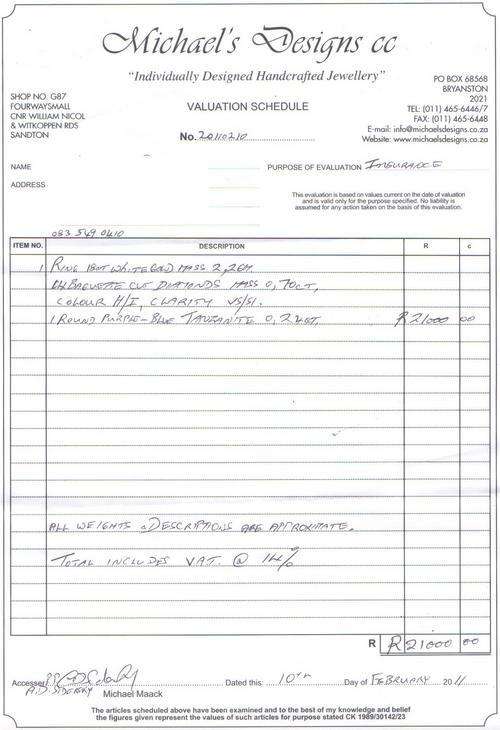 Michael's Designs cc
"Individually Designed Handcrafted Jewellery"
SHOP NO. G87
FOURWAYSMALL
CNR WILLIAM NICOL
& WITKOPPEN RDS
SANDTON
VALUATION SCHEDULE
No. 20110210
PO BOX 68568
BRYANSTON
2021
TEL: (011) 465-6446/7
FAX: (011) 465-6448
E-mail: info@michaelsdesigns.co.za
Website: www.michaelsdesigns.co.za
NAME
ADDRESS
PURPOSE OF EVALUATION INSURANCE
This evaluation is based on values current on the date of valuation
and is valid only for the purpose specified. No liability is
assumed for any action taken on the basis of this evaluation.
083 549 0410
ITEM NO. DESCRIPTION R c
1 RING 18CT WHITE GOLD MASS 2,26M.
BAGUETTE CUT DIAMONDS MASS 0,70CT,
COLOUR H/I, CLARITY VS/SI.
1 ROUND PURPLE-BLUE TANZANITE 0,24CT. R21000 00
ALL WEIGHTS & DESCRIPTIONS ARE APPROXIMATE.
TOTAL INCLUDES VAT. @ 14%
R R21000 00
Accesser
A.D. SIDERSKY Michael Maack
Dated this: 10TH Day of FEBRUARY 2011
The articles scheduled above have been examined and to the best of my knowledge and belief
the figures given represent the values of such articles for purpose stated CK 1989/30142/23